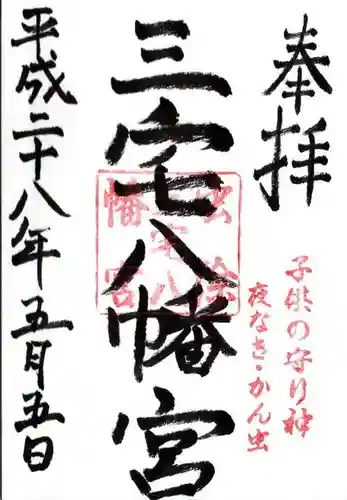 奉拝
子供の守り神
夜なき・かん虫
三宅八幡宮
平成二十八年五月五日